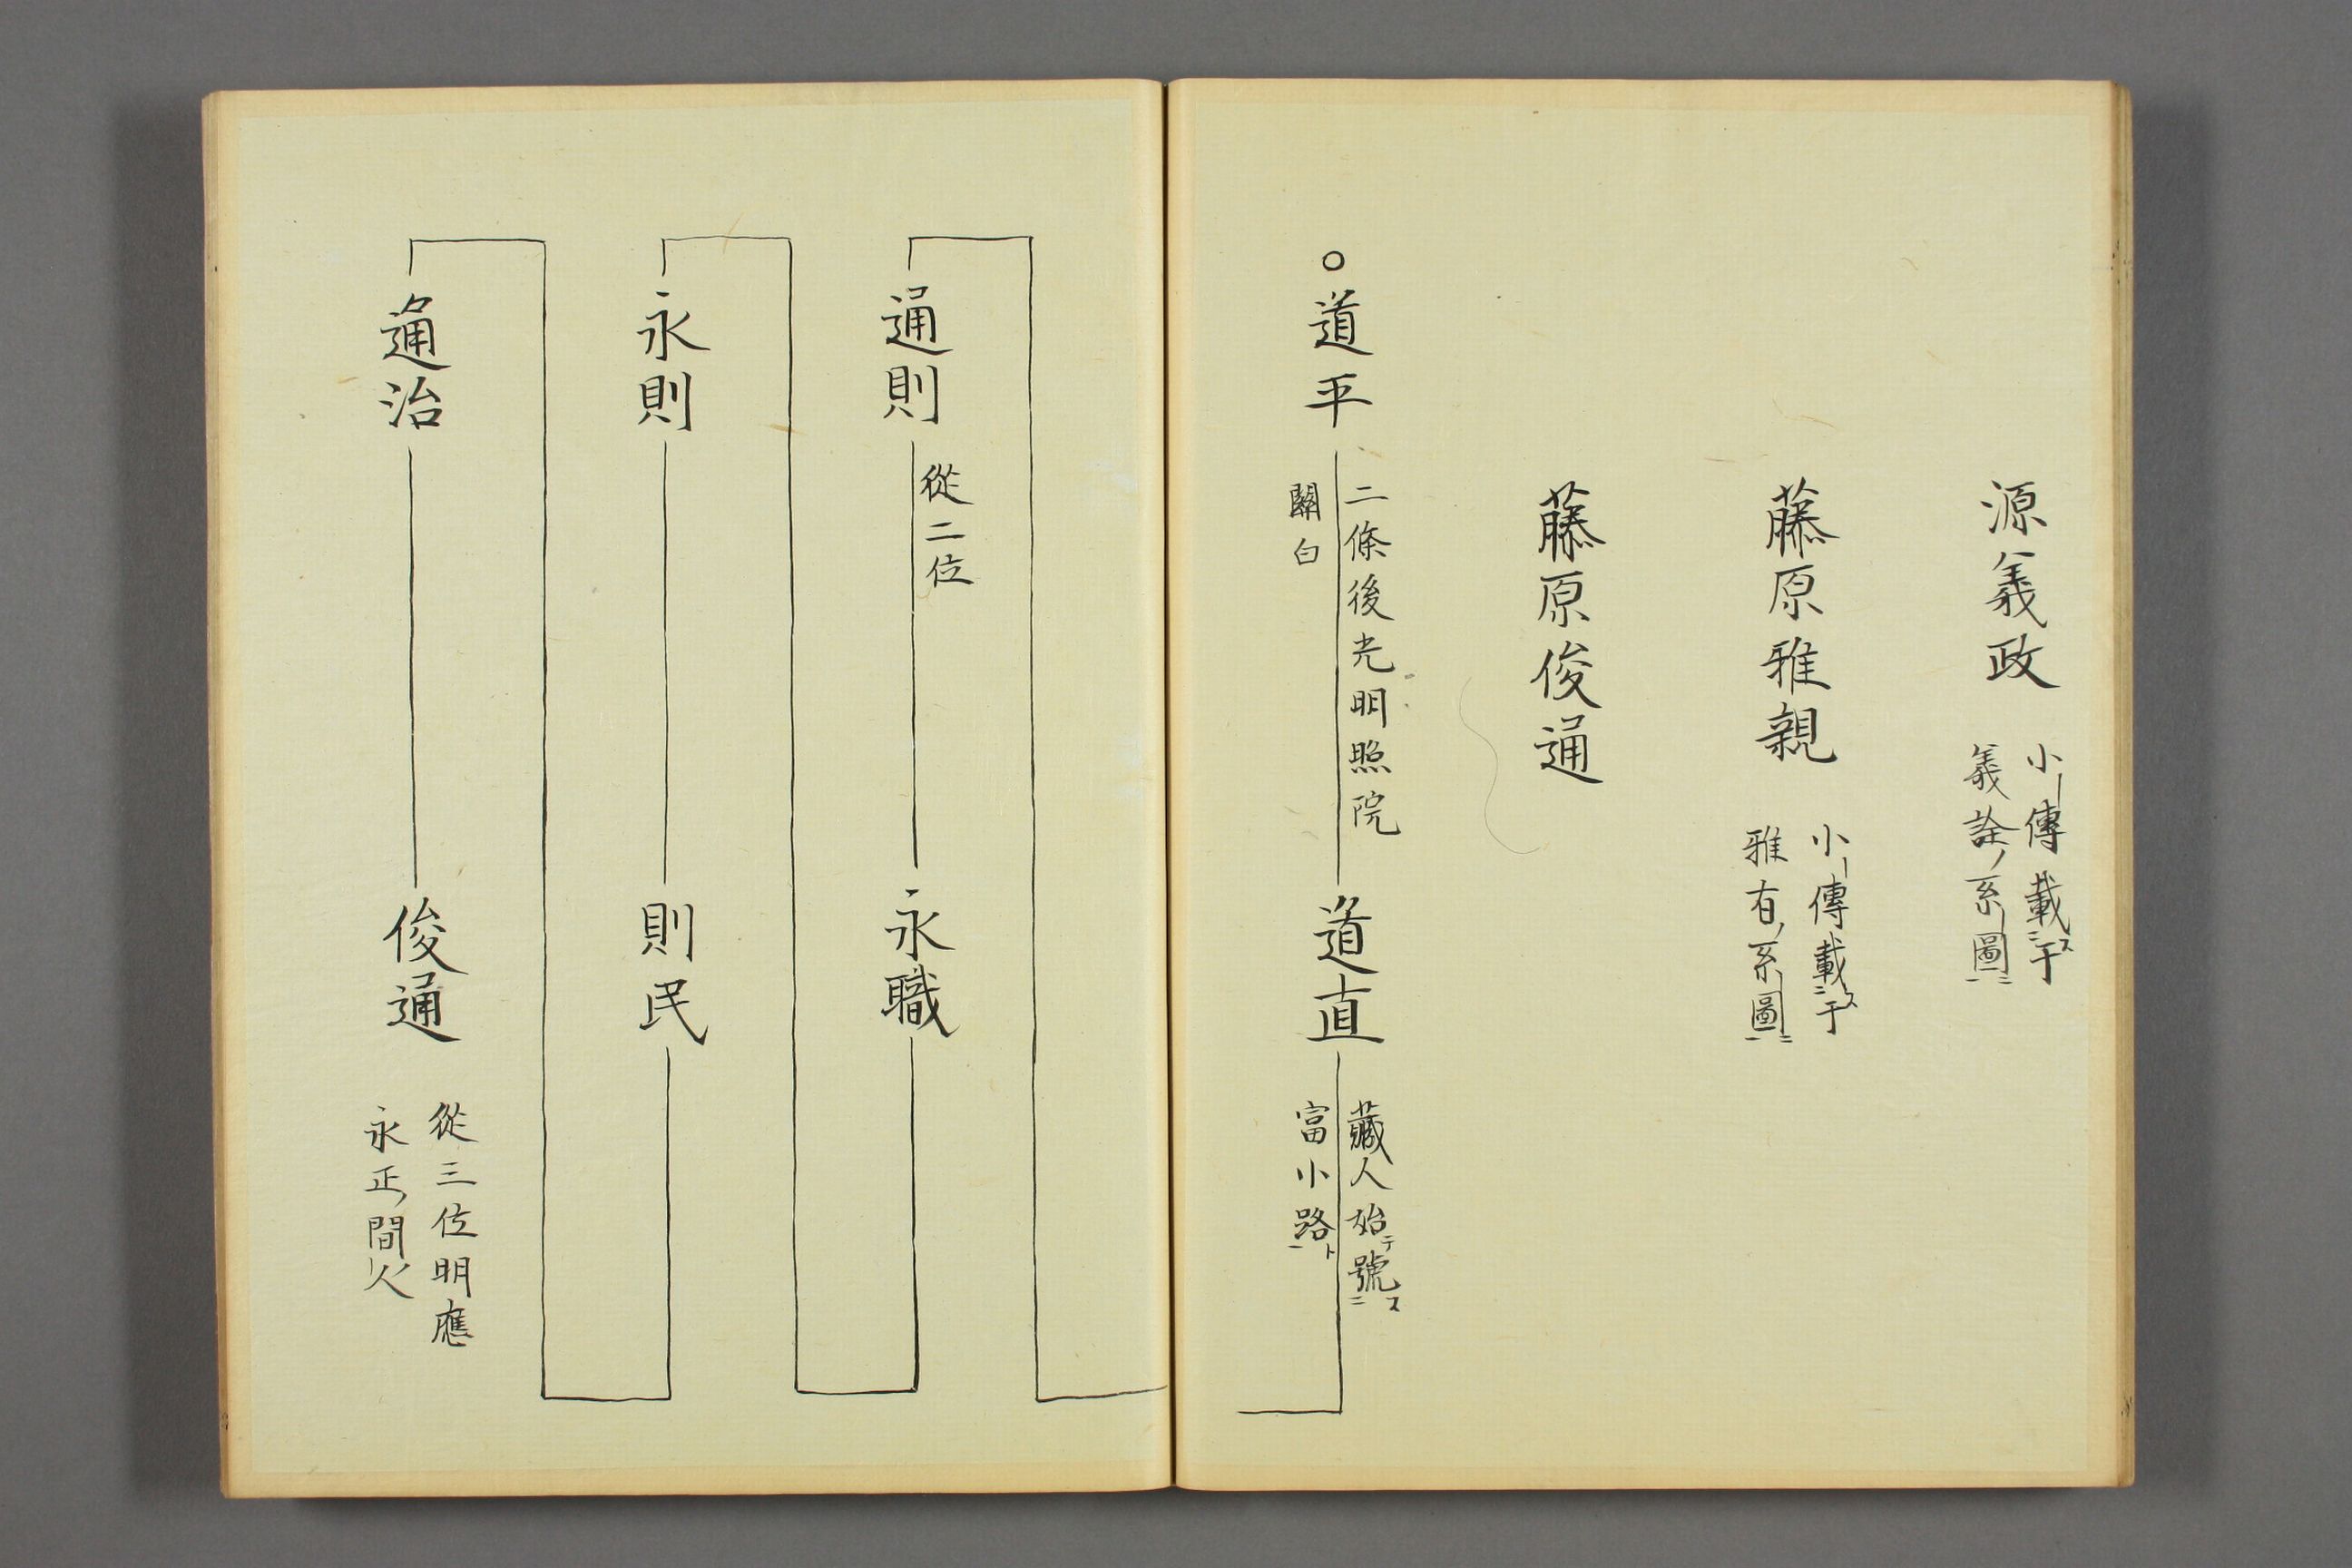 源義政
小傳載ス二于
義詮ノ系圖一ニ
藤原雅親
小傳載ス二于
雅有ノ系圖一ニ
藤原俊通
○道平
二條後光明照院
關白
道直
藏人始テ號ス二
富小路ト一
通則
從二位
永職
永則
則民
通治
俊通
從三位明應
永正ノ間ノ人